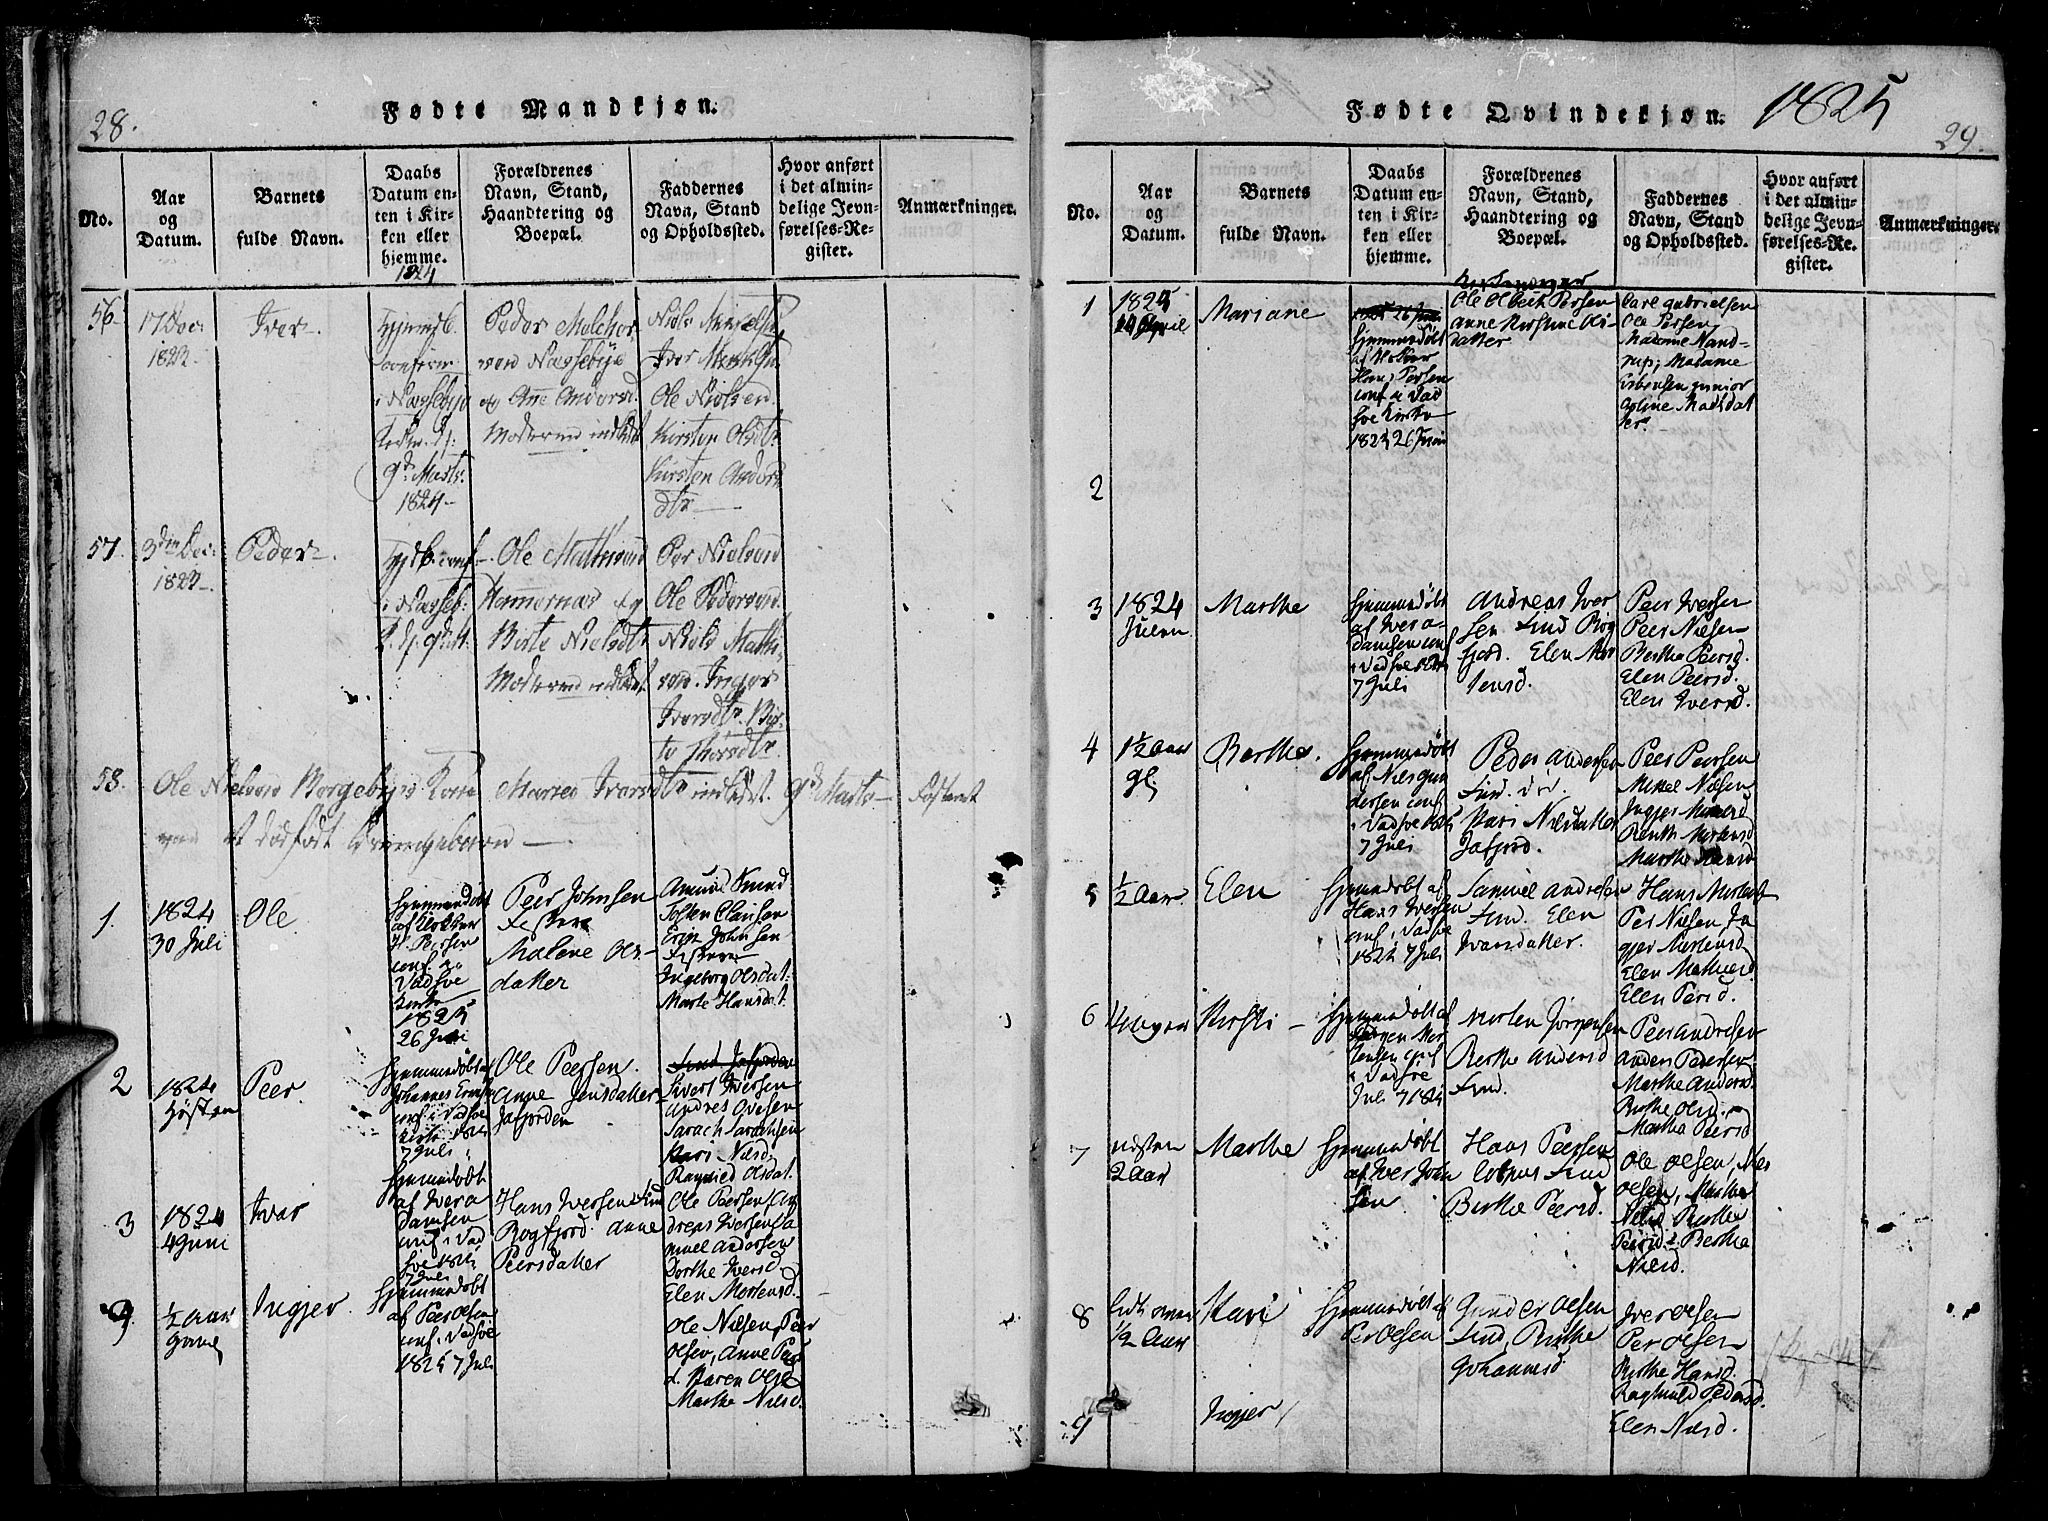 28.
Fødte Mandkjøn.
No.
Aar
og
Datum.
Barnets
fulde Navn.
Daabs
Datum en-
ten i Kir-
ken eller
hjemme.
1824
Forældrenes
Navn, Stand,
Haandtering og
Boepæl.
Faddernes
Navn, Stand
og Opholdssted.
Hvor anført
i det almin-
delige Jevn-
førelses-Re-
gister.
Anmærkninger.
56.
17 Dec:
1823.
Iver
Hjemdb.
confirm.
i Næssebye
9d Marts
1824
Peder Melcher
Næssebye
og Ane Anders
Moderen indledt
Ole Nielsen
Kirsten Olsdtr
Kirsten Anders
dtr
57.
3dm Dec:
1823
Peder
Hjdb. conf.
i Næsseb.
Ole Mathisen
Hammernæs og
Birte Nielsdtr
Moderen indledt
Per Nielsen
Ole Pedersen
Niels Mathi-
sen. Inger
Iversdtr. Bir-
te Thorsdtr.
58.
Ole Nielsen Borgebye's Kone Maren Iversdtr indledt. 9d Marts
et dødfødt Drengebarn
1.
1824
30 Juli
Ole
Hjemmedøbt
af Klokker
H. Peersen
conf. i
Vadsøe
Kirke
1825
26 Juni
Peer Johnsen
Malene Ols-
datter
Amund
Tosten Clausen
Erik Johnsen
Ingeborg Olsdat.
Marte Hansdat.
2
1824
Høsten
Peer
Hjemmedøbt af
Johannes
conf. i Vadsøe
Kirke 1825
7 Juli
Ole Peersen.
Anne Jensdatter
Jafjorden
Sivert Iversen
Andres Ovesen
Sarach Sarachsen
Kari Nielsd.
Ragnild Olsdat.
3
1824
4 Juni
Ivar
Hjemmedøbt
af Iver A
damsen
conf. i Vad
søe 1825
7 Juli
Hans Iversen Find
Bogfjord. Anne
Peersdatter
Ole Peersen, An
dreas Iversen Sa
muel Andersen
Dorthe Iversd.
Elen Mortensd.
4.
1/2 Aar
Ingjer
Hjemmedøbt
af Peer Olsen
conf. i Vadsøe
1825 7 Juli
Ole Nielsen, Peer
Olsen, Anne Peer
d. Karen Olsd.
Marthe Nielsd.
Fødte Qvindekjøn.
1825
29.
No.
Aar
og
Datum.
Barnets
fulde Navn.
Daabs
Datum en-
ten i Kir-
ken eller
hjemme.
Forældrenes
Navn, Stand,
Haandtering og
Boepæl.
Faddernes
Navn, Stand
og Opholdssted.
Hvor anført
i det almin-
delige Jevn-
førelses-Re-
gister.
Anmærkninger.
1
1825
April
Mariane
Hjemmedøbt
af Klokker
Hans Persen
conf. i Vad
søe Kirke
1825 26 Juni
Ole Olbert Persen
Anne Kirstine Ols
datter
Carl Gabrielsen
Ole Persen
Madame Nand-
rup, Madame
Esbensen junior
Madsdat
ter.
2
3
1824
Julen
Marthe
Hjemmedøbt
af Iver A-
damsen conf
i Vadsøe 1825
7 Juli
Andreas Iver
sen Find Bog
fjord. Elen Mor
tensd.
Peer Iversen
Peer Nielsen
Berthe Peersd.
Elen Peersd.
Elen Iversd.
4
1 1/2 Aar
gl.
Berthe.
Hjemmedøbt
af Niels Gun
dersen conf
i Vadsøe 1825
7 Juli
Peder Andersen
Find.
Kari Nielsdatter
Jafjord.
Peer Peersen
Mikkel Nielsen
Berith Mortensd
Marthe
5
1/2 Aar
Elen
Hjemmedøbt af
Hans Iversen
conf. i Vadsøe
1825 7 Juli
Samuel Andresen
Find. Elen
Ivarsdatter.
Hans
Per Nielsen In
gjer Mortensd
Elen Mathisd
Elen Persd.
6
Kirsti
Hjemmedøbt af
Jørgen Mor
tensen conf
i Vadsøe
Juli 7 1825
Morten Jørgensen
Berthe Andersd
Find.
Peer Andresen
Anders Pedersen
Marthe Andersd.
Berthe Olsd.
Martha Peersd
7
næsten
2 Aar
Marthe
Hjemmedøbt
af Iver John
sen
Hans Peersen
Find
Berthe Peersd.
Ole Olsen, Niels
Olsen, Marthe
Nielsd. Berthe
Peersd. Berthe
Nielsd.
8
Lidt over
1/2 Aar
Kari
Hjemmedøbt af
Per Olsen
Gunder Olsen
Find, Berthe
Johannesd.
Iver Olsen
Per Olsen
Berthe Hansd.
Ragnild Pedersd.
Elen Nielsd.
9
Ingjer